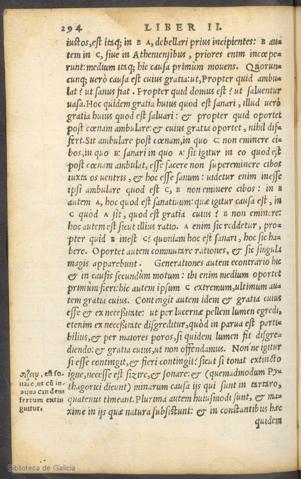 294 LIBER II.
iustos, est itaq; in B A, debellari prius incipientes: B au
tem in C, siue in Atheniensibus, priores enim incœpe-
runt: medium itaq; hic causa primùm mouens. Quorun-
cunq; uerò causa est cuius gratia: ut, Propter quid ambu
lat? ut sanus fiat. Propter quid domus est? ut saluentur
uasa. Hoc quidem gratia huius quod est sanari, illud uerò
gratia huius quod est saluari: & propter quid oportet
post cœnam ambulare: & cuius gratia oportet, nihil dif-
fert. Sit ambulare post cœnam, in quo C: non eminere ci-
bos, in quo B: sanari in quo A: sit igitur in eo quod est
post cœnam ambulare, esse facere non supereminere cibos
iuxta os uentris, & hoc esse sanum: uidetur enim inesse
ipsi ambulare quod est C, B non eminere cibos: in B
autem A, hoc quod est sanatiuum: quæ igitur causa est, in
C quòd A sit, quod est gratia cuius? B non eminere:
hoc autem est sicut illius ratio. A enim sic reddetur, pro-
pter quid B inest C? quoniam hoc est sanari, hoc sic ha-
bere. Oportet autem commutare rationes, & sic singula
magis apparebunt. Generationes autem econtrario hic
& in causis secundùm motum: ibi enim medium oportet
primùm fieri: hic autem ipsum C extremum, ultimum au-
tem gratia cuius. Contingit autem idem & gratia cuius
esse & ex necessitate: ut per lucernæ pellem lumen egredi,
etenim ex necessitate disgreditur, quòd in parua est parti-
bilius, & per maiores poros, si quidem lumen fit disgre-
diendo: & gratia cuius, ut non offendamus. Non'ne igitur
si esse contingit, & fieri contingit? sicut si tonat extincto
igne, necesse est sizere, & sonare: & (quemadmodum Py-
thagorici dicunt) minarum causa ijs qui sunt in tartaro,
quatenus timeant. Plurima autem huiusmodi sunt, & ma-
xime in ijs quæ natura subsistunt: & in constantibus hæc
quidem
est so-
nare, ut cū in
aqua candens
ferrum extin
guitur.
Biblioteca de Galicia